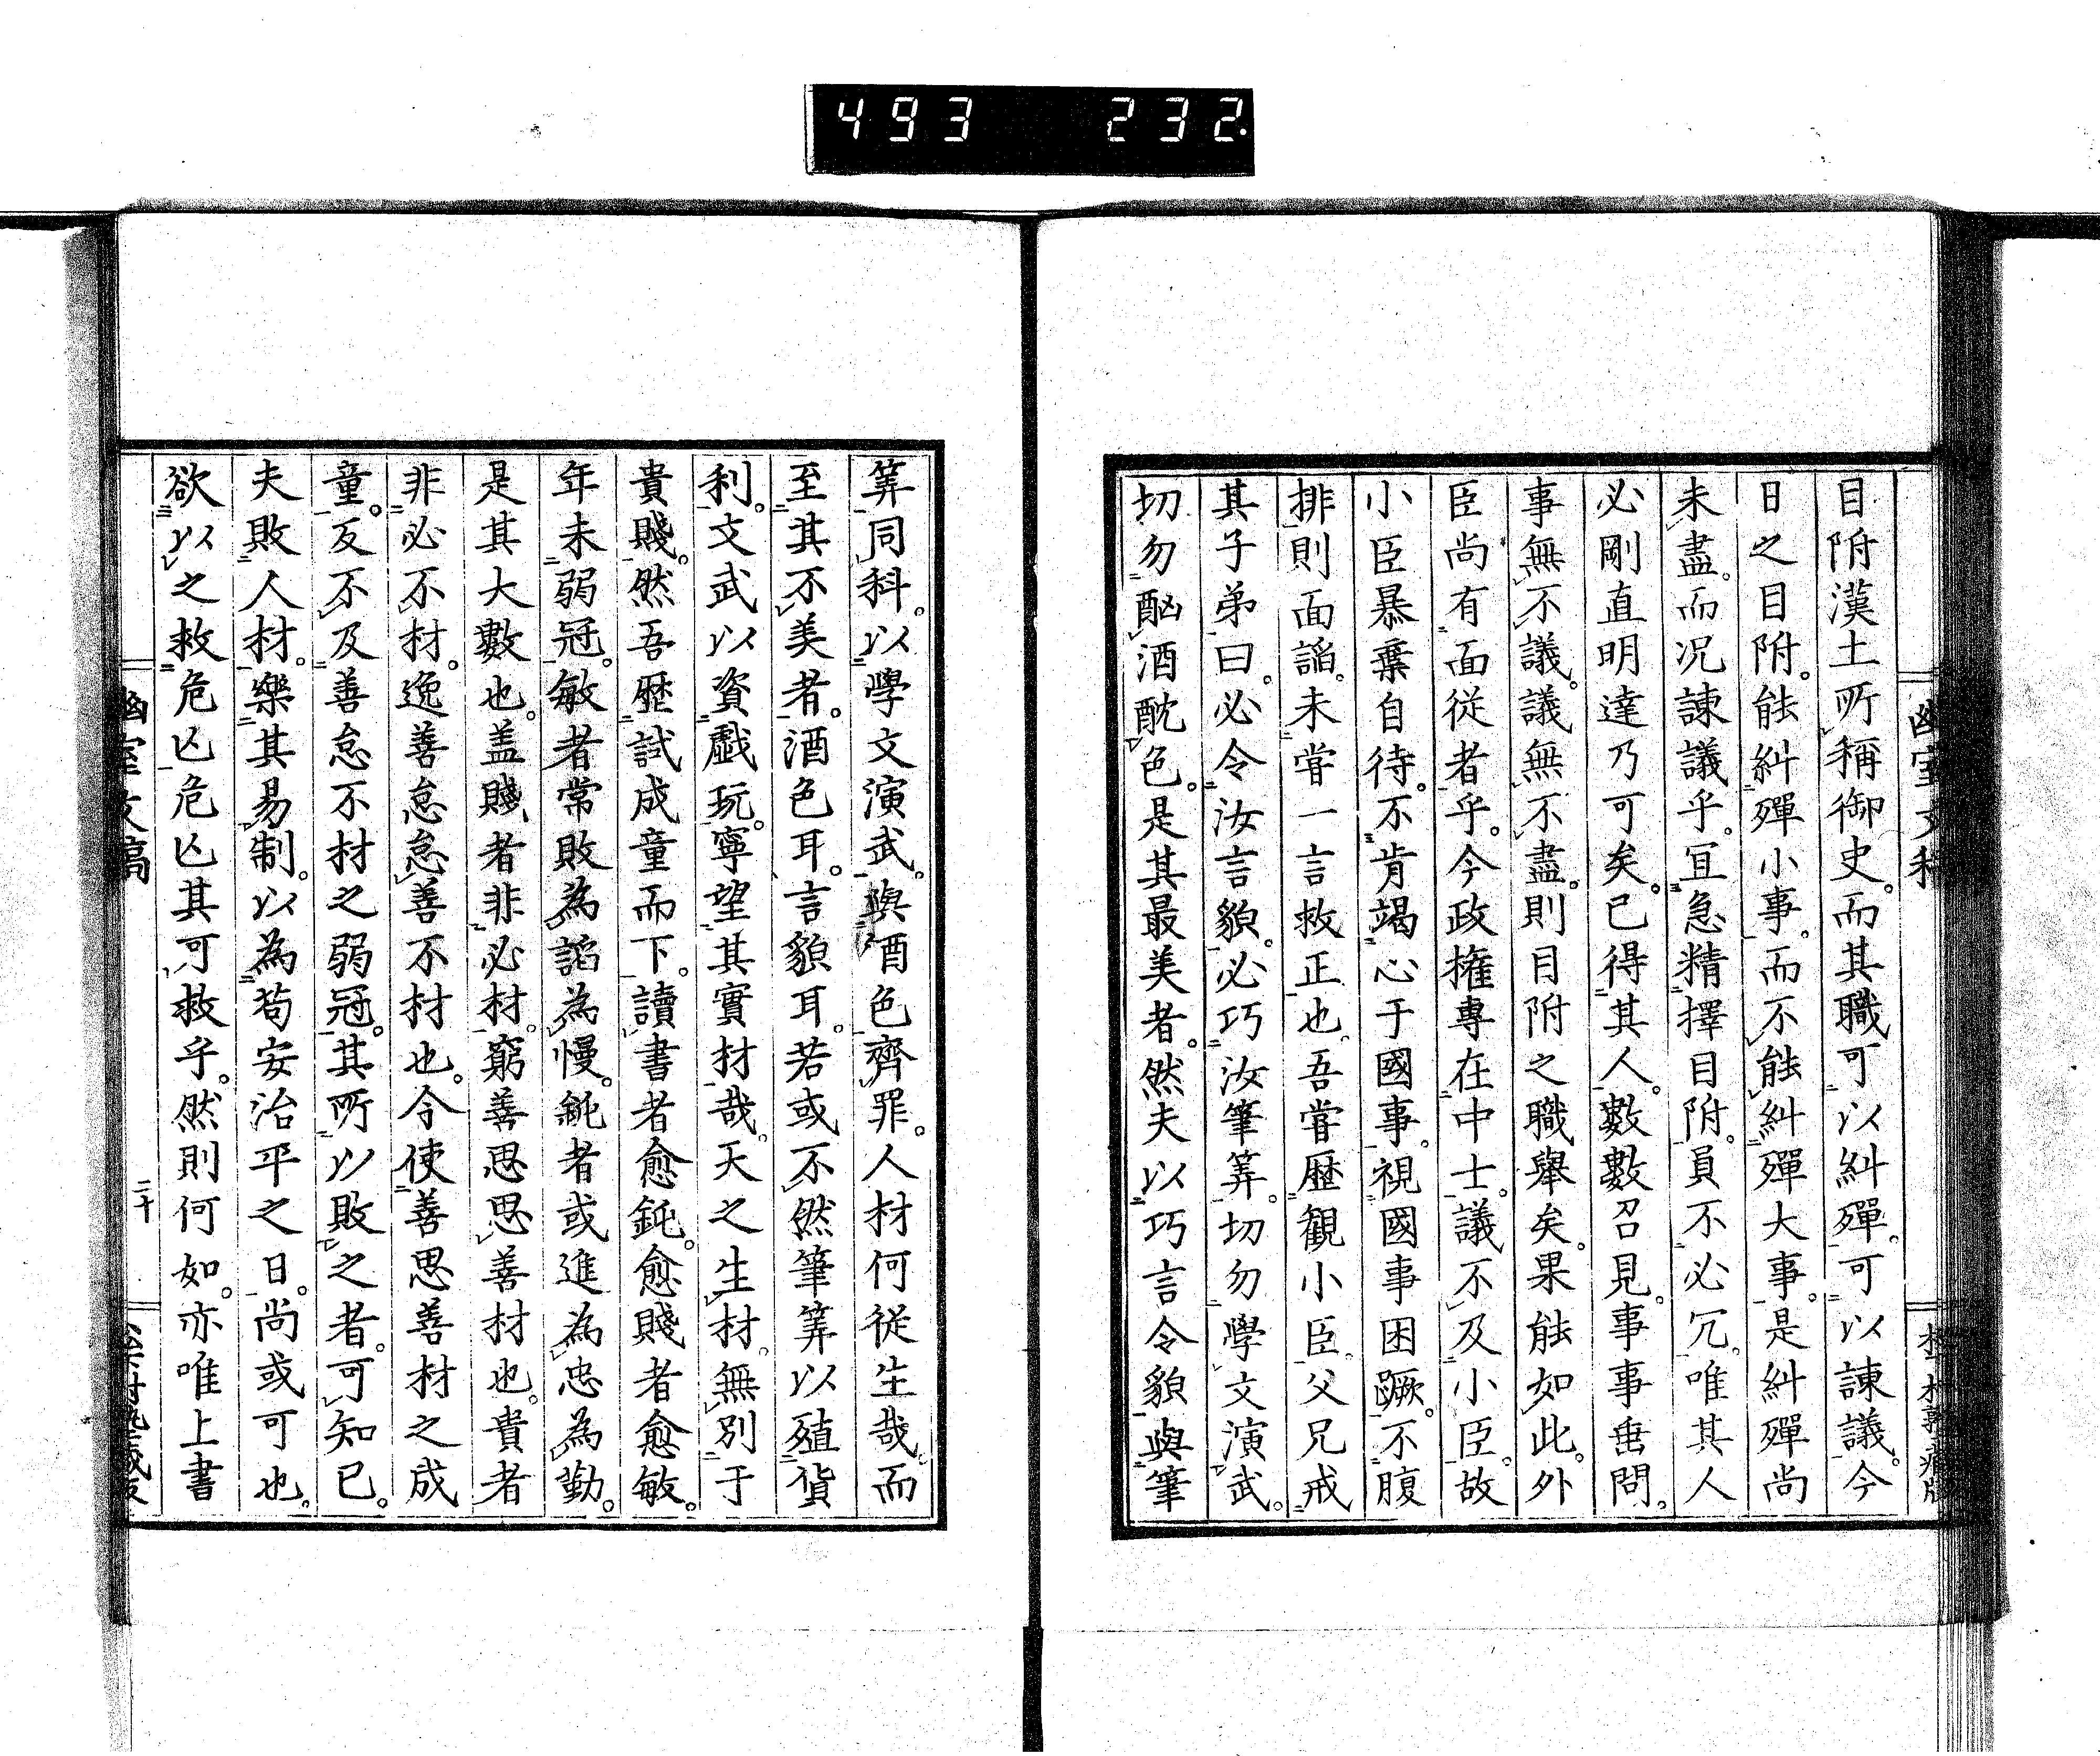 493 232
目附漢土所稱御史。而其職可以糾殫。可以諫議。今
日之目附。能糾殫小事。而不能糾殫大事。是糾殫尚
未盡。而况諫議乎。宜急精擇目附。員不必冗。唯其人
必剛直明達乃可矣。已得其人。數數召見。事事垂問。
事無不議。議無不盡。則目附之職舉矣。果能如此。外
臣尚有面從者乎。今政權專在中士。議不及小臣。故
小臣暴棄自待。不肯竭心于國事。視國事困蹶。不腹
排則面謟。未甞一言救正也。吾甞歷觀小臣。父兄戒
其子弟曰。必令汝言貌。必巧汝筆筭。切勿學文演武。
切勿酗酒酖色。是其最美者。然夫以巧言令貌與筆
筭同科。以學文演武。與酒色齊罪。人材何從生哉。而
至其不美者。酒色耳。言貌耳。若或不然筆筭以殖貨
利。文武以資戲玩。寧望其實材哉。天之生材。無別于
貴賤。然吾歷試成童而下。讀書者愈鈍。愈賤者愈敏。
年未弱冠。敏者常敗為謟為慢。鈍者或進為忠為勤。
是其大數也。盖賤者非必材。窮善思思善材也。貴者
非必不材。逸善怠怠善不材也。令使善思善材之成
童。反不及善怠不材之弱冠。其所以敗之者。可知已。
夫敗人材。樂其易制。以為苟安治平之日。尚或可也。
欲以之救危亾危亾其可救乎。然則何如。亦唯上書
幽室文稿
二十